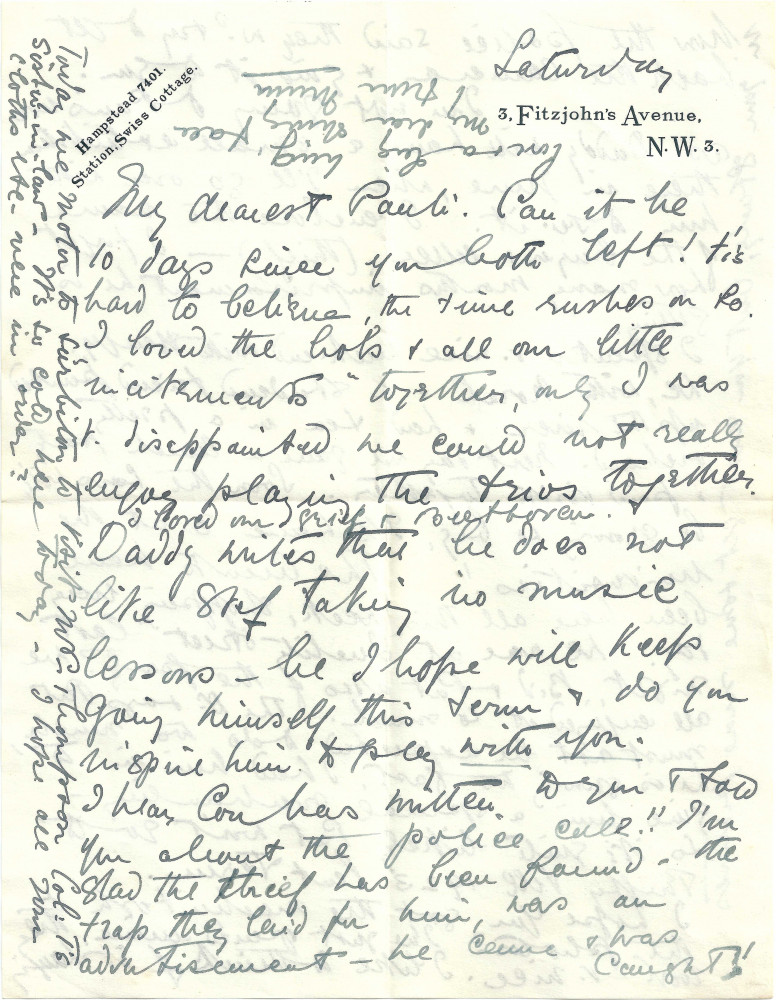 Saturday
Hampstead 7401.
Station, Swiss Cottage.
3, Fitzjohn's Avenue,
N.W. 3.
My dearest Pauli. Can it be
10 days since you both left! 'tis
hard to believe, the time rushes on so.
I loved the hols & all our little
incitements" together, only I was
t. disappointed we could not really
enjoy playing the trios together.
I loved our Grieg & Beethoven.
Daddy writes that he does not
like Stef taking no music
lessons – he I hope will keep
going himself this term & do you
inspire him to play with you.
I hear Con has written & told
you about the police call!! I'm
glad the thief has been found – the
trap they laid for him, was an
advertisement – he came & was
Caught!!
Today we motor to Surbiton to visit Mrs. Thompson Col: T's
Sister-in-law – It's so cold here today – I hope all your
cloths etc – were in order?
love & a big
hug,
My dear
from
Mum